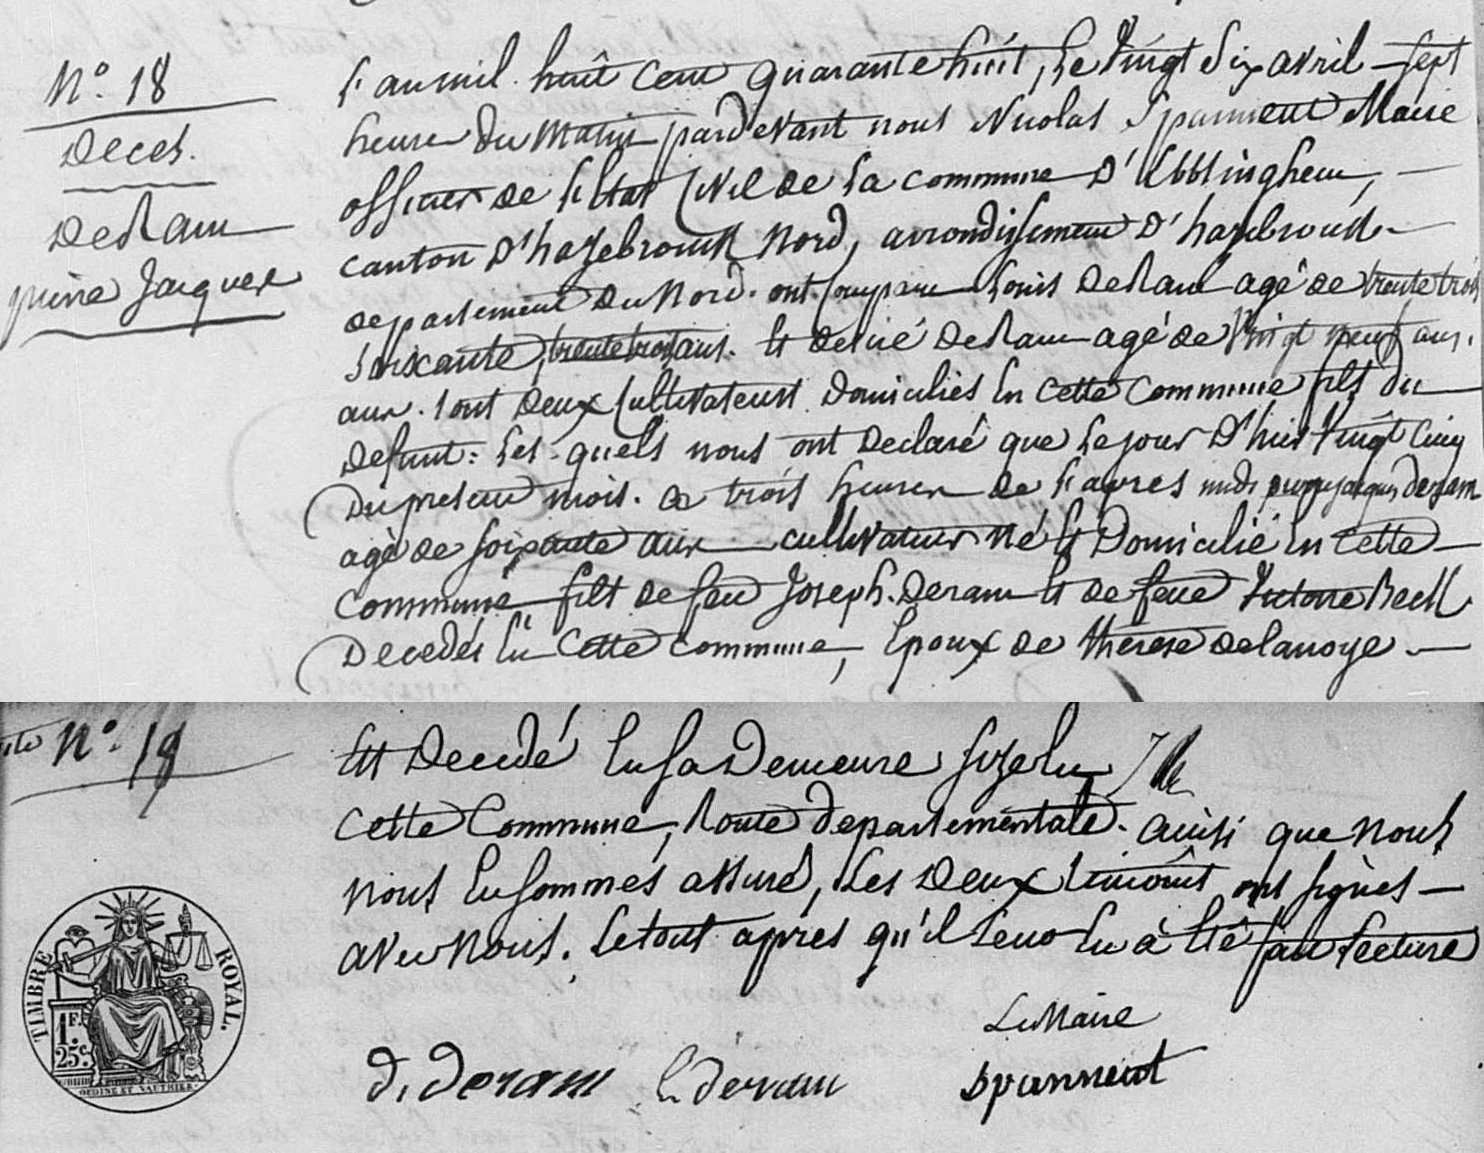 N° 18
Deces.
DeRam
pierre Jacques
L'an mil huit cent quarante huit, le vingt six avril sept
heures du matin pardevant nous Nicolas Spanneut Maire
officier de l'Etat Civil de la commune D'Ebblinghem,
canton D'hazebrouck Nord, arrondissement D'hazebrouck
departement Du Nord. ont comparu Louis DeRam agé de trente trois
soixante, trente trois ans. Et desiré DeRam agé de Vingt neuf ans.
ans. tout deux Cultivateurs Domiciliés En cette Commune fils du
defunt: les quels nous ont Declaré que le jour D'hier Vingt Cinq
Du present mois. a trois heures de l'apres midi pierre jacques deram
agé de soixante ans cultivateur Né Et Domicilié En cette
Commune fils de feu Joseph. Deram Et de feue Victoire Beck
Decedés En cette commune, Epoux de thérèse delanoye.
N°. 18
Est Decedé En sa Demeure size En
cette Commune, Route departementale. ainsi que nous
nous En sommes assuré, Les Deux temoins ont signés
avec Nous. Le tout apres qu'il leur En a Eté fait lecture
Le Maire
D. Deram L. Deram Spanneut
TIMBRE ROYAL.
1 F.
25 c.